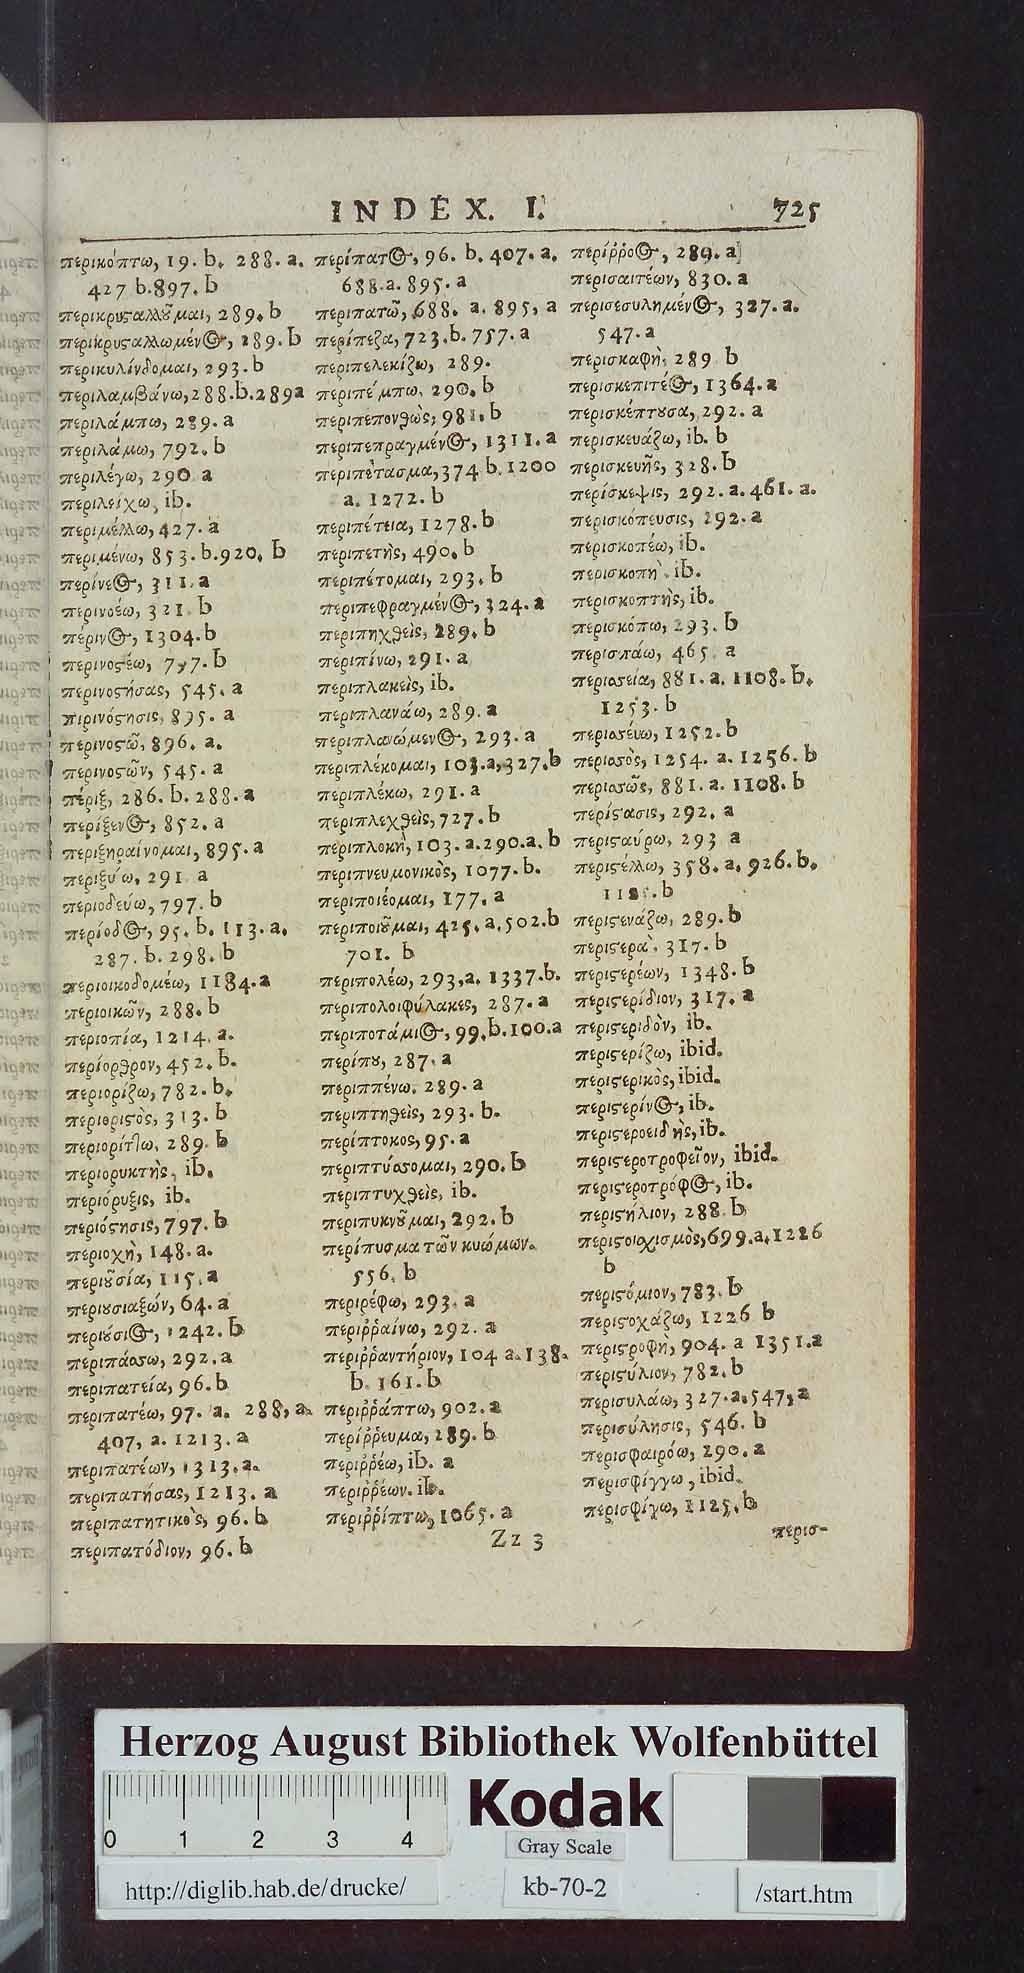 INDEX. I. 725
περικόπτω, 19. b. 288. a.
427 b. 897. b
περικρυςαλλȣ͂μαι, 289. b
περικρυςαλλωμένος, 289. b
περικυλίνδομαι, 293. b
περιλαμβάνω, 288. b. 289 a
περιλάμπω, 289. a
περιλάμω, 792. b
περιλέγω, 290 a
περιλείχω, ib.
περιμέλλω, 427. a
περιμένω, 853. b. 920. b
περίνεος, 311. a
περινοέω, 321. b
πέρινος, 1304. b
περινοςέω, 797. b
περινοςήσας, 545. a
πιρινόςησις, 895. a
περινοςῶ, 896. a.
περινοςῶν, 545. a
πέριξ, 286. b. 288. a
περίξενος, 852. a
περιξηραίνομαι, 895. a
περιξύω, 291 a
περιοδεύω, 797. b
περίοδος, 95. b. 113. a.
287. b. 298. b
περιοικοδομέω, 1184. a
περιοικῶν, 288. b
περιοπία, 1214. a.
περίορθρον, 452. b.
περιορίζω, 782. b.
περιοριςὸς, 313. b
περιορίττω, 289. b
περιορυκτὴς, ib.
περιόρυξις, ib.
περιόςησις, 797. b
περιοχὴ, 148. a.
περιȣσία, 115. a
περιȣσιαξών, 64. a
περιȣ́σιος, 1242. b
περιπάσσω, 292. a
περιπατεία, 96. b
περιπατέω, 97. a. 288, a.
407, a. 1213. a
περιπατέων, 1313. a.
περιπατήσας, 1213. a
περιπατητικὸς, 96. b
περιπατόδιον, 96. b
περίπατος, 96. b. 407. a.
688. a. 895. a
περιπατῶ, 688. a. 895, a
περίπεζα, 723. b. 757. a
περιπελεκίζω, 289.
περιπέμπω, 290. b
περιπεπονθὼς, 981. b
περιπεπραγμένος, 1311. a
περιπέτασμα, 374 b. 1200
a. 1272. b
περιπέτεια, 1278. b
περιπετὴς, 490. b
περιπέτομαι, 293. b
περιπεφραγμένος, 324. a
περιπηχθεὶς, 289. b
περιπίνω, 291. a
περιπλακεὶς, ib.
περιπλανάω, 289. a
περιπλανώμενος, 293. a
περιπλέκομαι, 103. a, 327. b
περιπλέκω, 291. a
περιπλεχθεὶς, 727. b
περιπλοκὴ, 103. a. 290. a. b
περιπνευμονικὸς, 1077. b.
περιποιέομαι, 177. a
περιποιȣ͂μαι, 425. a. 502. b
701. b
περιπολέω, 293, a. 1337. b.
περιπολοιφύλακες, 287. a
περιποτάμιος, 99. b. 100. a
περίπȣ, 287. a
περιππένω. 289. a
περιπτηθεὶς, 293. b.
περίπτοκος, 95. a
περιπτύσσομαι, 290. b
περιπτυχθεὶς, ib.
περιπυκνȣ͂μαι, 292. b
περίπυσμα τῶν κυώμων.
556. b
περιρέφω, 293. a
περιῤῥαίνω, 292. a
περιῤῥαντήριον, 104 a. 138.
b. 161. b
περιῤῥάπτω, 902. a
περίῤῥευμα, 289. b
περιῤῥέω, ib. a
περιῤῥέων. ib.
περιῤῥίπτω, 1065. a
περίῤῥοος, 289. a
περισαιτέων, 830. a
περισεσυλημένος, 327. a.
547. a
περισκαφὴ, 289 b
περισκεπιτέος, 1364. a
περισκέπτȣσα, 292. a
περισκευάζω, ib. b
περισκευῆς, 328. b
περίσκεψις, 292. a. 461. a.
περισκόπευσις, 292. a
περισκοπέω, ib.
περισκοπὴ. ib.
περισκοπτὴς, ib.
περισκόπω, 293. b
περισπάω, 465. a
περισσεία, 881. a. 1108. b.
1253. b
περισσεύω, 1252. b
περισσὸς, 1254. a. 1256. b
περισσῶς, 881. a. 1108. b
περίςασις, 292. a
περιςαύρω, 293 a
περιςέλλω, 358. a. 926. b.
b
περιςενάζω, 289. b
περιςερὰ, 317. b
περιςερέων, 1348. b
περιςερίδιον, 317. a
περιςεριδὸν, ib.
περιςερίζω, ibid.
περιςερικὸς, ibid.
περιςερίνος, ib.
περιςεροειδὴς, ib.
περιςεροτροφεῖον, ibid.
περιςεροτρόφος, ib.
περιςήλιον, 288. b
περιςοιχισμὸς, 699. a. 1226
b
περιςόμιον, 783. b
περιςοχάζω, 1226 b
περιςροφὴ, 904. a 1351. a
περιςύλιον, 782. b
περισυλάω, 327. a. 547, a
περισύλησις, 546. b
περισφαιρόω, 290. a
περισφίγγω, ibid.
περισφίγω, 1125. b
Zz 3
περισ-
Herzog August Bibliothek Wolfenbüttel
0 1 2 3 4
Kodak
Gray Scale
http://diglib.hab.de/drucke/
kb-70-2
/start.htm